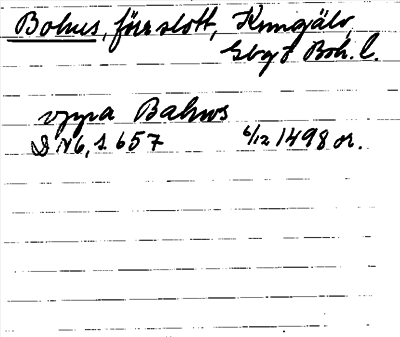 Bohus, förr slott, Kungälv,
Gbg o Boh. l.
vppa Bahws
D N 6, s. 657 6/12 1498 or.